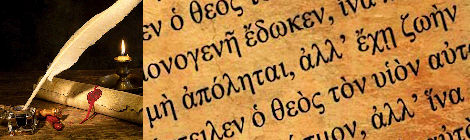 εν ὁ θεὸς τ
ονογενῆ ἔδωκεν, ἵνα
μὴ ἀπόληται, ἀλλ’ ἔχῃ ζωὴν
τειλεν ὁ θεὸς τὸν υἱὸν αὐτ
σμον, ἀλλ’ ἵνα